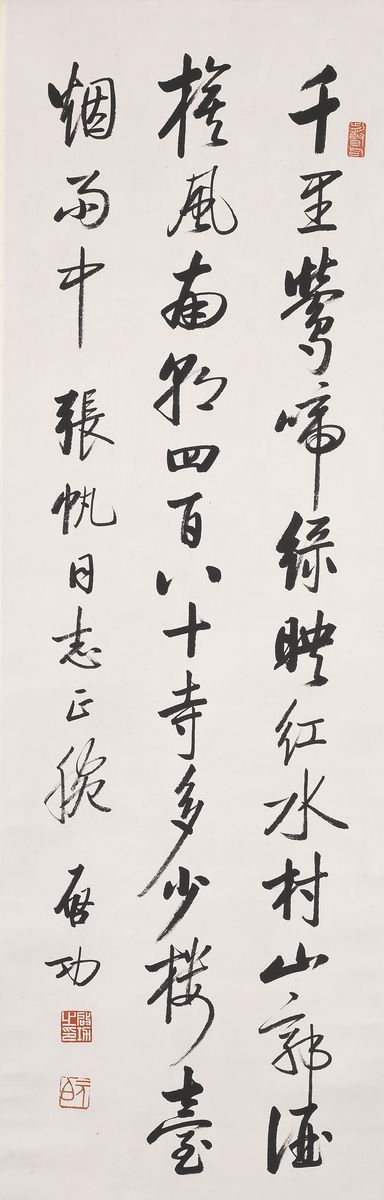 千里鶯啼綠映紅水村山郭酒
旗風南朝四百八十寺多少樓臺
烟雨中 張帆同志正腕 啓功
啟功之印
元白